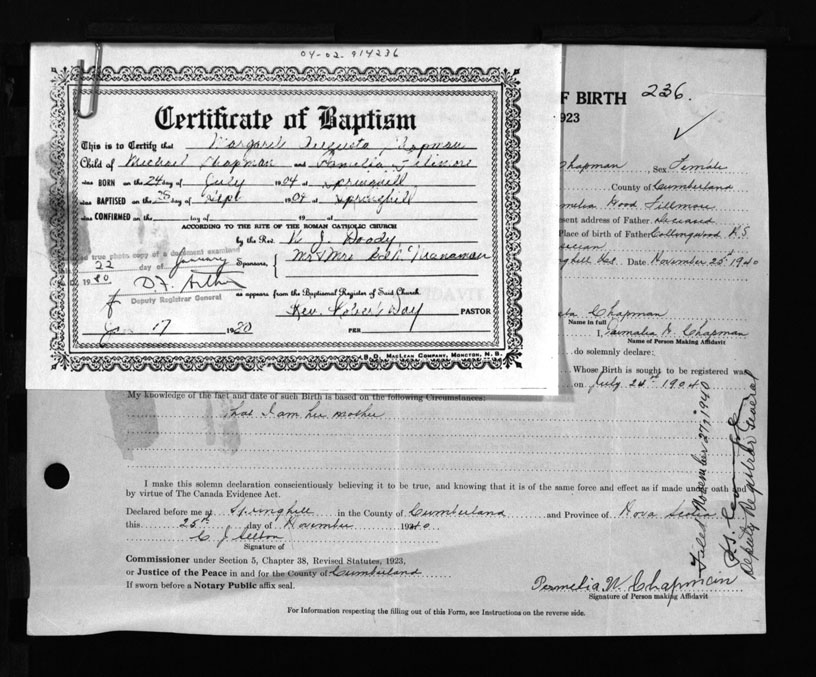 04-02-914236
Certificate of Baptism
This is to Certify that Margaret Augusta Chapman
Child of Michael Chapman and Pamelia Fillmore
was BORN on the 24 day of July 1904 at Springhill
was BAPTISED on the 28 day of Sept 1904 at Springhill
was CONFIRMED on the day of 19 at
ACCORDING TO THE RITE OF THE ROMAN CATHOLIC CHURCH
by the Rev. J. Doody
Sponsors, Mr & Mrs
true photo copy of a document examined
22 day of January
1980
Deputy Registrar General
as appears from the Baptismal Register of Said Church
Rev. Day PASTOR
17 1920 PER
B. O. MACLEAN COMPANY, MONCTON, N. B.
F BIRTH 236.
923
Chapman Sex Female
County of Cumberland
Wood Fillmore
sent address of Father Deceased
Place of birth of Father Collingwood N.S.
Date November 25 1940
Chapman
Name in full
I, Chapman
Name of Person Making Affidavit
do solemnly declare:
Whose Birth is sought to be registered was
on July 24th 1904
My knowledge of the fact and date of such Birth is based on the following Circumstances:
that I am her mother
I make this solemn declaration conscientiously believing it to be true, and knowing that it is of the same force and effect as if made under oath and
by virtue of The Canada Evidence Act.
Declared before me at Springhill in the County of Cumberland and Province of Nova Scotia
this 25th day of November 1940
C. J.
Signature of
Commissioner under Section 5, Chapter 38, Revised Statutes, 1923,
or Justice of the Peace in and for the County of Cumberland
If sworn before a Notary Public affix seal.
Permelia W. Chapman
Signature of Person making Affidavit
For Information respecting the filling out of this Form, see Instructions on the reverse side.
November 27, 1940
Deputy Registrar General